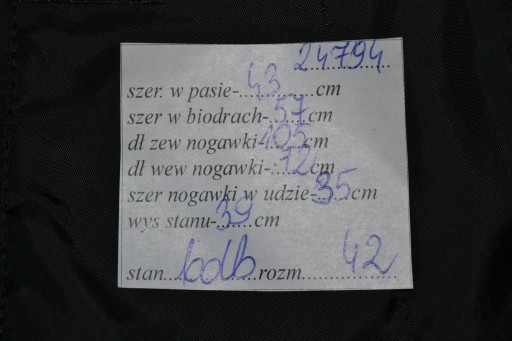 24794
szer. w pasie-.43.cm
szer w biodrach-.57.cm
dl zew nogawki-105.cm
dl wew nogawki-.72.cm
szer nogawki w udzie-35.cm
wys stanu-.39.cm
stan...bdb...rozm...42...